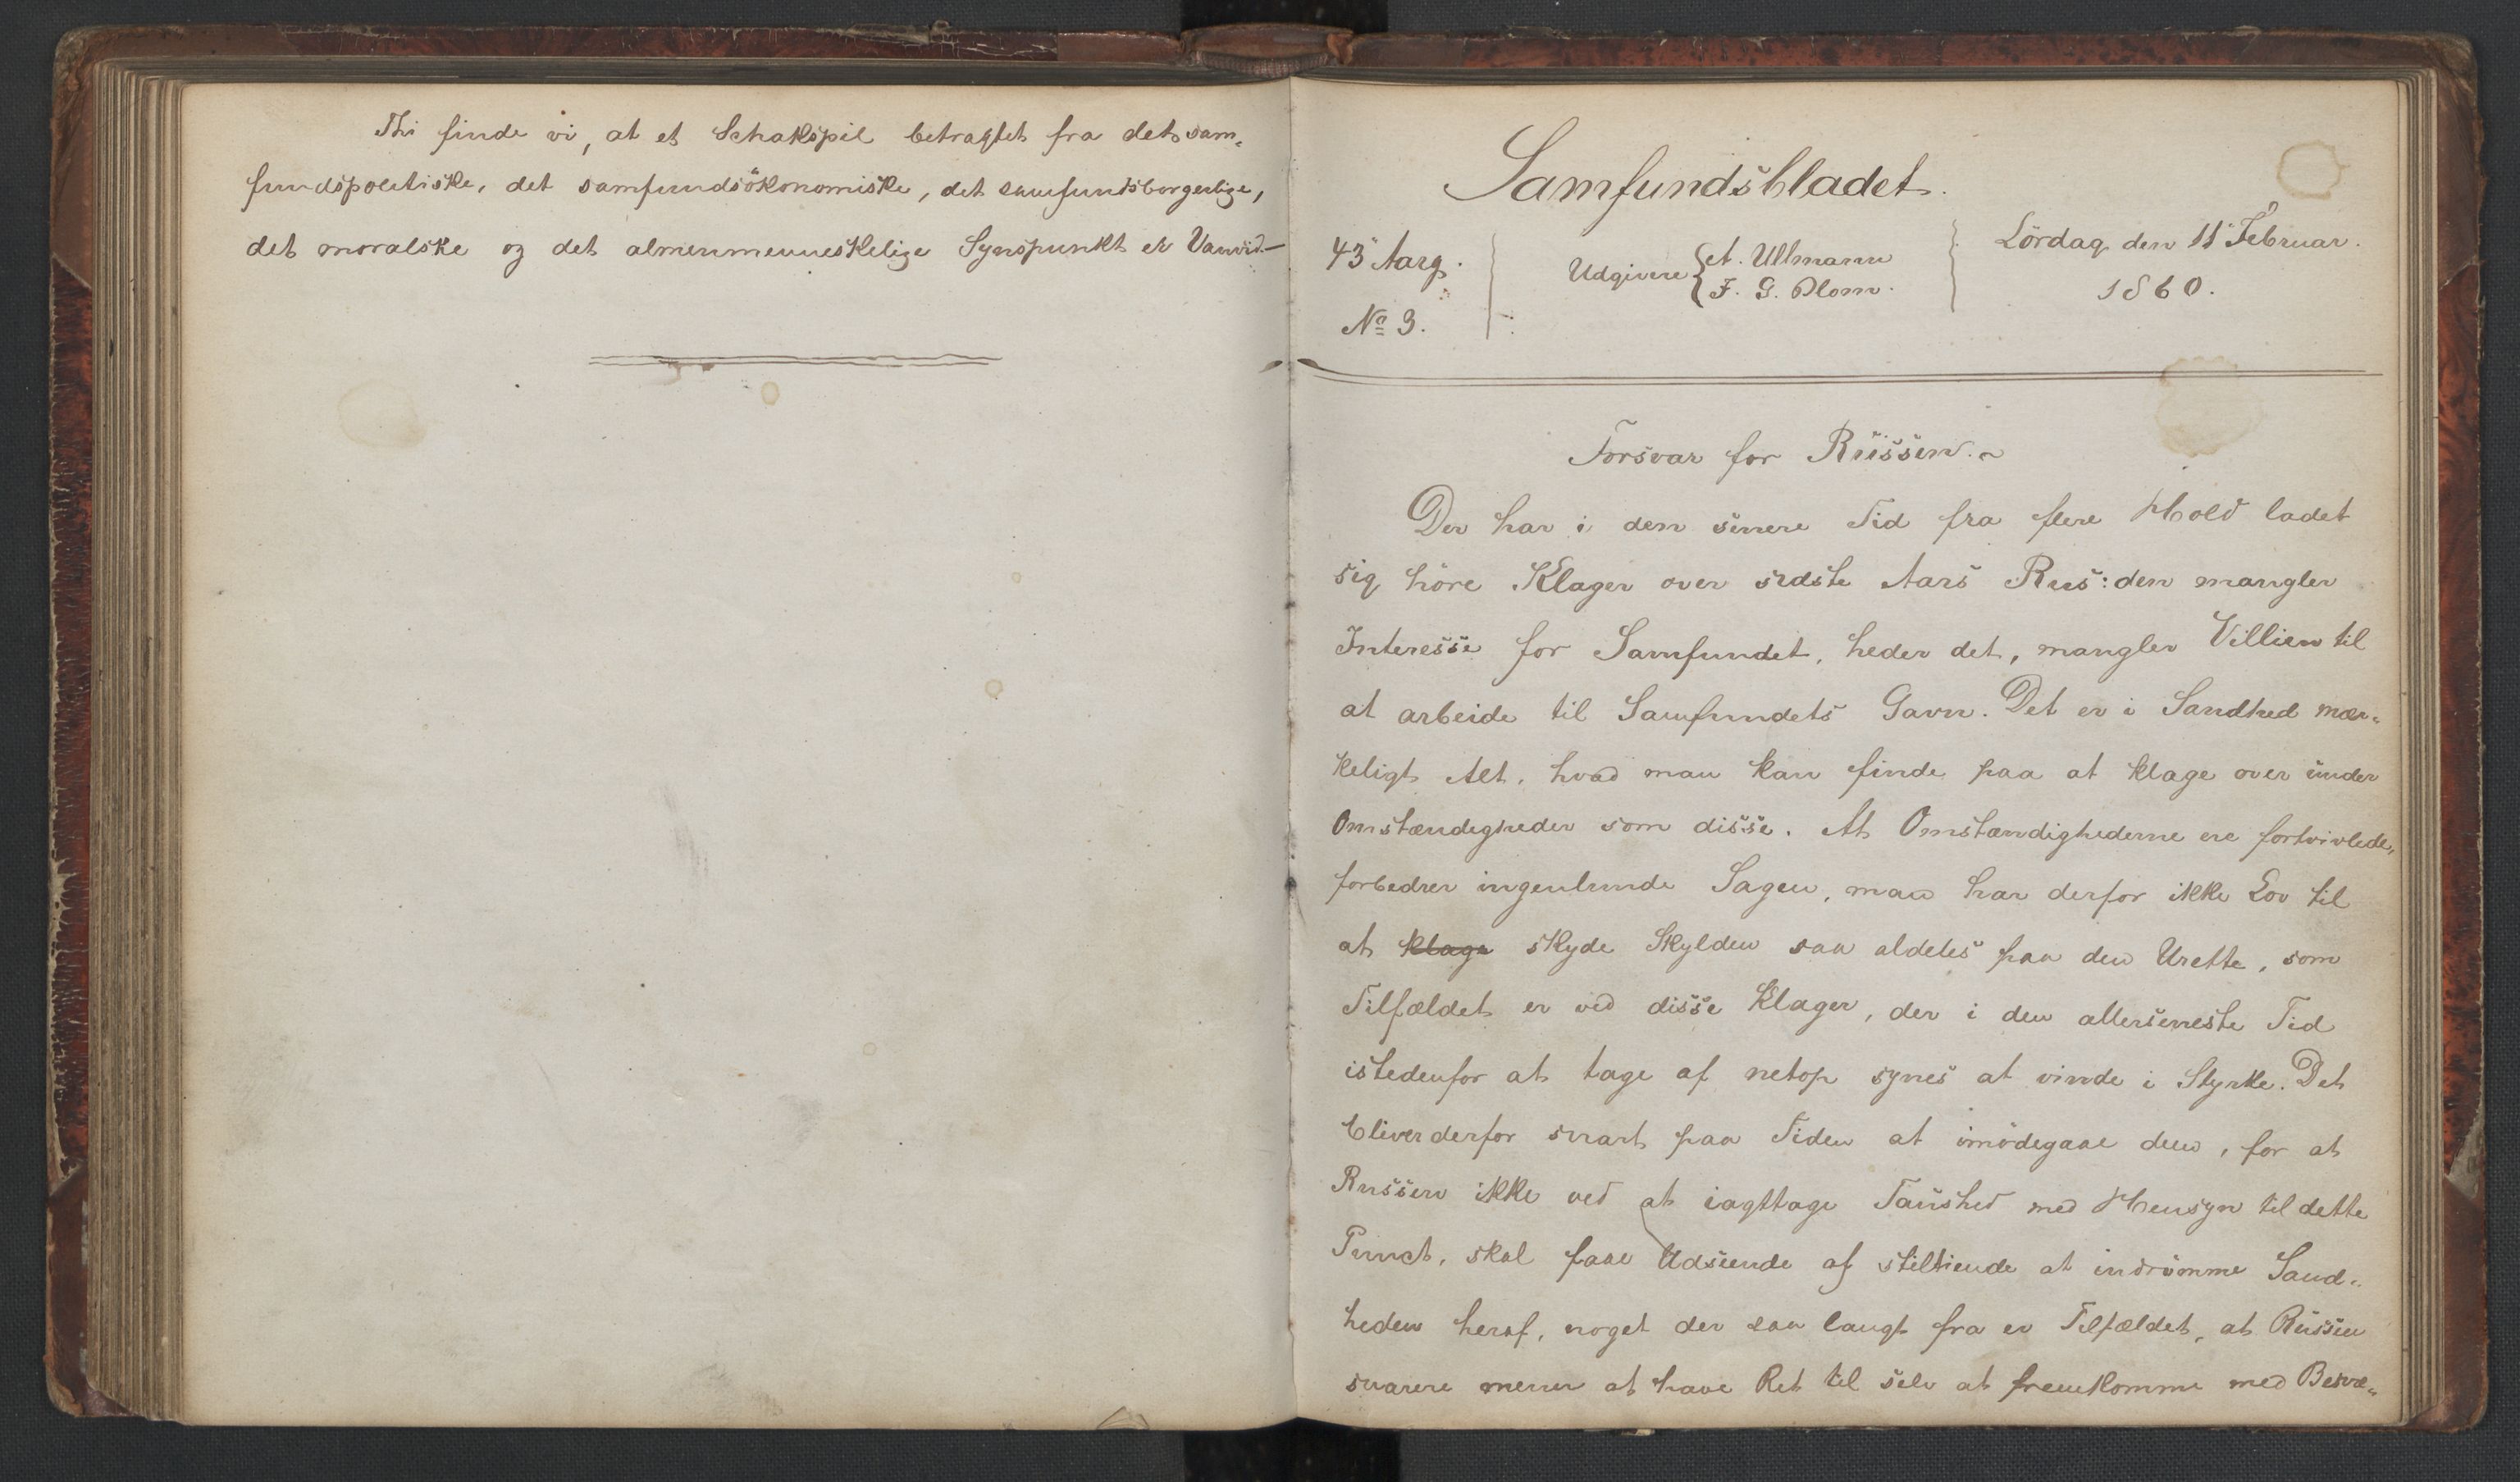 Thi finde vi, at et Schakspil betragtet fra det sam-
fundspolitiske, det samfundsökonomiske, det samfundsborgerlige,
det moralske og det almenmenneskelige Synspunkt er Vanvid.—
Samfundsbladet.
43 Aarg.
No 3.
Udgivere { A. Ullmann
F. G. Blom.
Lördag den 11 Februar.
1860.
Forsvar for Russen.
Der har i den senere Tid fra flere Hold ladet
sig höre Klager over sidste Aars Rus: den mangler
Interesse for Samfundet, heder det, mangler Villien til
at arbeide til Samfundets Gavn. Det er i Sandhed mær-
keligt Alt, hvad man kan finde paa at klage over under
Omstændigheder som disse. At Omstændighederne ere fortvivlede,
forbedrer ingenlunde Sagen, man har derfor ikke Lov til
at klage skyde Skylden saa aldeles paa den Urette, som
Tilfældet er ved disse Klager, der i den allerseneste Tid
istedenfor at tage af netop synes at vinde i Styrke. Det
bliver derfor snart paa Tiden at imödegaae dem, for at
Russen ikke ved at iagttage Taushed med Hensyn til dette
Punct, skal faae Udseende af stiltiende at indrömme Sand-
heden heraf, noget der saa langt fra er Tilfældet, at Russen
snarere mener at have Ret til selv at fremkomme med Besvæ-